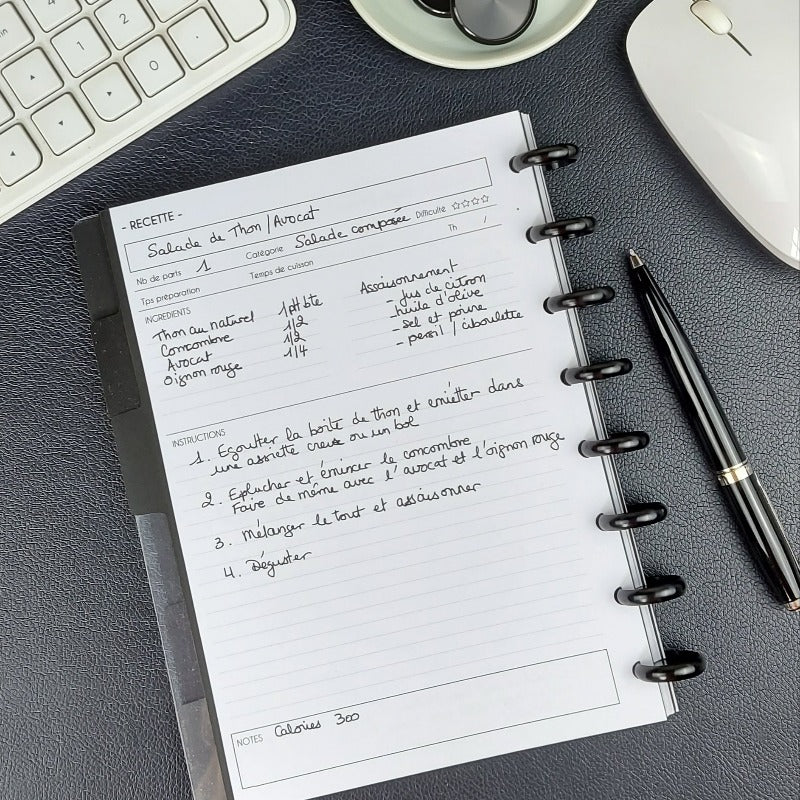 - RECETTE -
Salade de Thon / Avocat
Nb de parts 1 Catégorie Salade composée Difficulté ☆☆☆☆
Tps préparation Temps de cuisson Th /
INGREDIENTS
Thon au naturel 1 ptt bte
Concombre 1/2
Avocat 1/2
Oignon rouge 1/4
Assaisonnement
- jus de citron
- huile d'olive
- sel et poivre
- persil / ciboulette
INSTRUCTIONS
1. Egoutter la boîte de thon et emietter dans
une assiette creuse ou un bol
2. Eplucher et émincer le concombre
Faire de même avec l'avocat et l'oignon rouge
3. Mélanger le tout et assaisonner
4. Déguster
NOTES Calories 300